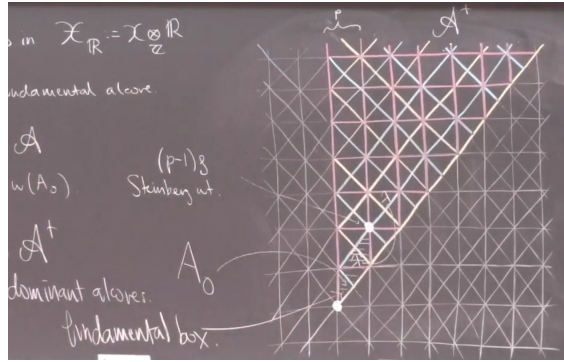 in 𝒳_ℝ := 𝒳 ⊗_ℤ ℝ
undamental alcove.
𝒜
w(A₀)
(p-1)ρ
Steinberg wt.
𝒜⁺
dominant alcoves.
A₀
fundamental box.
p
𝒜⁺